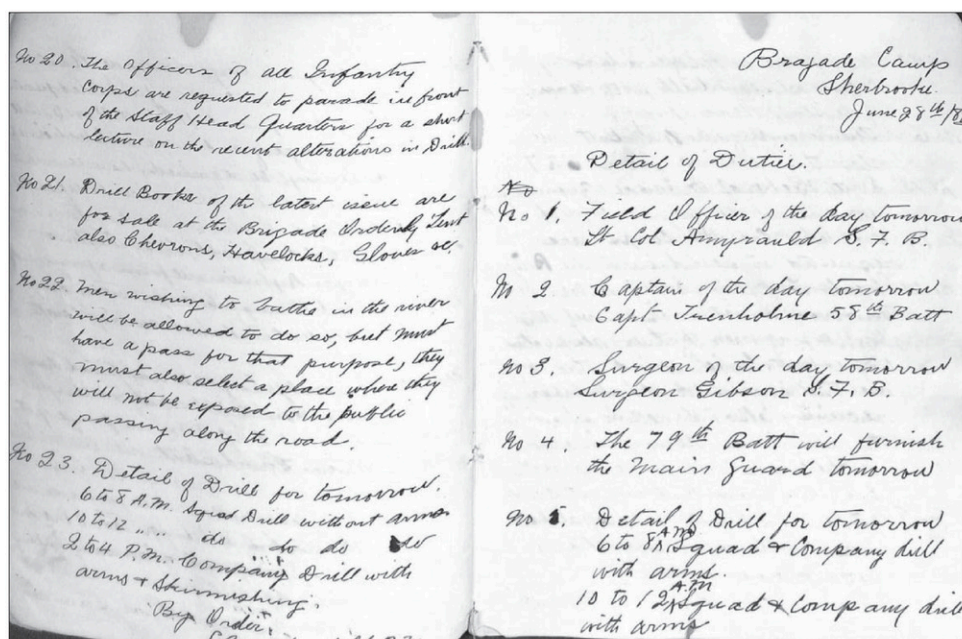 No 20. The Officers of all Infantry
Corps are requested to parade in front
of the Staff Head Quarters for a short
lecture on the recent alterations in Drill.
No 21. Drill Books of the latest issue are
for sale at the Brigade Orderly Tent
also Chevrons, Havelocks, Gloves &c.
No 22. Men wishing to bathe in the river
will be allowed to do so, but must
have a pass for that purpose, they
must also select a place where they
will not be exposed to the public
passing along the road.
No 23. Detail of Drill for tomorrow.
6 to 8 A.M. Squad Drill without arms
10 to 12 " " do do do do
2 to 4 P.M. Company Drill with
arms & Skirmishing.
By Order.
Bragade Camp
Sherbrooke.
June 28th
Detail of Duties.
No
No 1. Field Officer of the day tomorrow
Lt Col Amyrauld S. F. B.
No 2. Captain of the day tomorrow
Capt Trenholme 58th Batt
No 3. Surgeon of the day tomorrow
Surgeon Gibson S. F. B.
No 4. The 79th Batt will furnish
the Main Guard tomorrow
No 5. Detail of Drill for tomorrow
6 to 8 A.M. Squad & Company dill
with arms.
10 to 12 A.M. Squad & Company drill
with arms